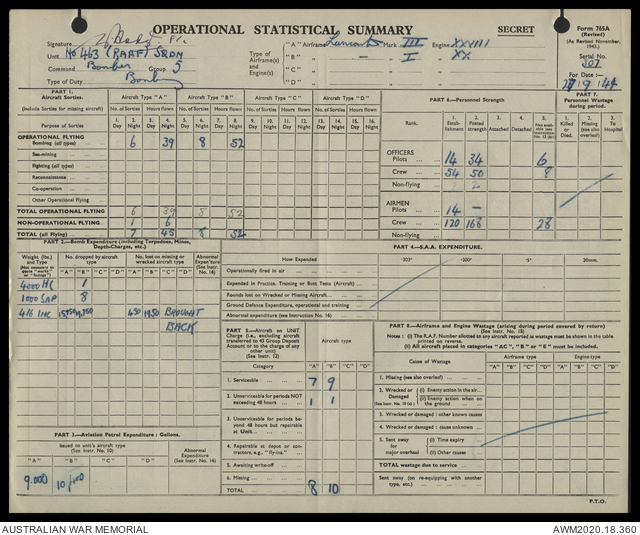 OPERATIONAL STATISTICAL SUMMARY
SECRET
Form 765A
(Revised)
(As Revised November, 1943.)
Serial No.
207
For Date :
17/9/44
Signature
F/L
Unit No 463 (RAAF) SQDN
Command Bomber Group 5
Type of Duty Bomb
Type of Airframe(s) and Engine(s):
"A" Airframe Lancaster Mark III Engine XXVIII
"B" " — " I " XX
"C"
"D"
PART 1.
Aircraft Sorties.
(include Sorties for missing aircraft)
Aircraft Type "A" Aircraft Type "B" Aircraft Type "C" Aircraft Type "D"
No. of Sorties Hours flown No. of Sorties Hours flown No. of Sorties Hours flown No. of Sorties Hours flown
Purpose of Sorties
1. Day 2. Night 3. Day 4. Night 5. Day 6. Night 7. Day 8. Night 9. Day 10. Night 11. Day 12. Night 13. Day 14. Night 15. Day 16. Night
OPERATIONAL FLYING
Bombing (all types) 6 39 8 52
Sea-mining
Fighting (all types)
Reconnaissance
Co-operation
Other Operational Flying
TOTAL OPERATIONAL FLYING 6 39 8 52
NON-OPERATIONAL FLYING 1 6
TOTAL (all Flying) 7 45 8 52
PART 6.—Personnel Strength
Rank.
1. Establishment 2. Posted strength 3. Attached 4. Detached
OFFICERS
Pilots 14 34 6
Crew 54 50 8
Non-flying 2 2
AIRMEN
Pilots 14 —
Crew 120 168 28
Non-flying
PART 7.
Personnel Wastage during Period.
1. Killed or Died. 2. Missing (see also overleaf) 3. To Hospital
PART 2.—Bomb Expenditure (including Torpedoes, Mines, Depth-Charges, etc.)
Weight (lbs.) and Type
No. dropped by aircraft type
No. lost on missing or wrecked aircraft type
Abnormal Expenditure (See Instr. No. 16)
"A" "B" "C" "D" "A" "B" "C" "D"
4000 HC 1
1000 SAP 8
4 lb INC 450 1950 BROUGHT BACK
PART 4.—S.A.A. EXPENDITURE.
How Expended
·303" ·300" ·5" 20mm.
Operationally fired in air
Expended in Practice, Training or Butt Tests (Aircraft)
Rounds lost on Wrecked or Missing Aircraft
Ground Defence Expenditure, operational and training
Abnormal expenditure (see Instruction No. 16)
PART 5.—Aircraft on UNIT Charge (i.e., excluding aircraft transferred to 43 Group Deposit Account or to the charge of any other unit)
(See Instr. 12)
Aircraft type
Category
"A" "B" "C" "D"
1. Serviceable 7 9
2. Unserviceable for periods NOT exceeding 48 hours 1 1
3. Unserviceable for periods beyond 48 hours but repairable at Unit
4. Repairable at depot or contractors, e.g., "fly-ins."
5. Awaiting write-off
6. Missing
TOTAL 8 10
PART 8.—Airframe and Engine Wastage (arising during period covered by return)
Notes : (i) The R.A.F. Number allotted to any aircraft reported as wastage must be shown in the table printed on reverse.
(ii) All aircraft placed in categories "AC", "B" or "E" must be included.
Cause of Wastage
Airframe type Engine type
"A" "B" "C" "D" "A" "B" "C" "D"
1. Missing (see also overleaf)
2. Wrecked or Damaged (See Instr. No. 10 (ii)) (i) Enemy action in the air
(ii) Enemy action when on the ground
3. Wrecked or damaged : other known causes
4. Wrecked or damaged : cause unknown
5. Sent away for major overhaul (i) Time expiry
(ii) Other causes
TOTAL wastage due to service
Sent away (on re-equipping with another type, etc.)
PART 3.—Aviation Petrol Expenditure : Gallons.
Issued to unit's aircraft type
(See Instr. No. 10)
Abnormal Expenditure (See Instr. No. 16)
"A" "B" "C" "D"
9,000
P.T.O.
AUSTRALIAN WAR MEMORIAL
AWM2020.18.360